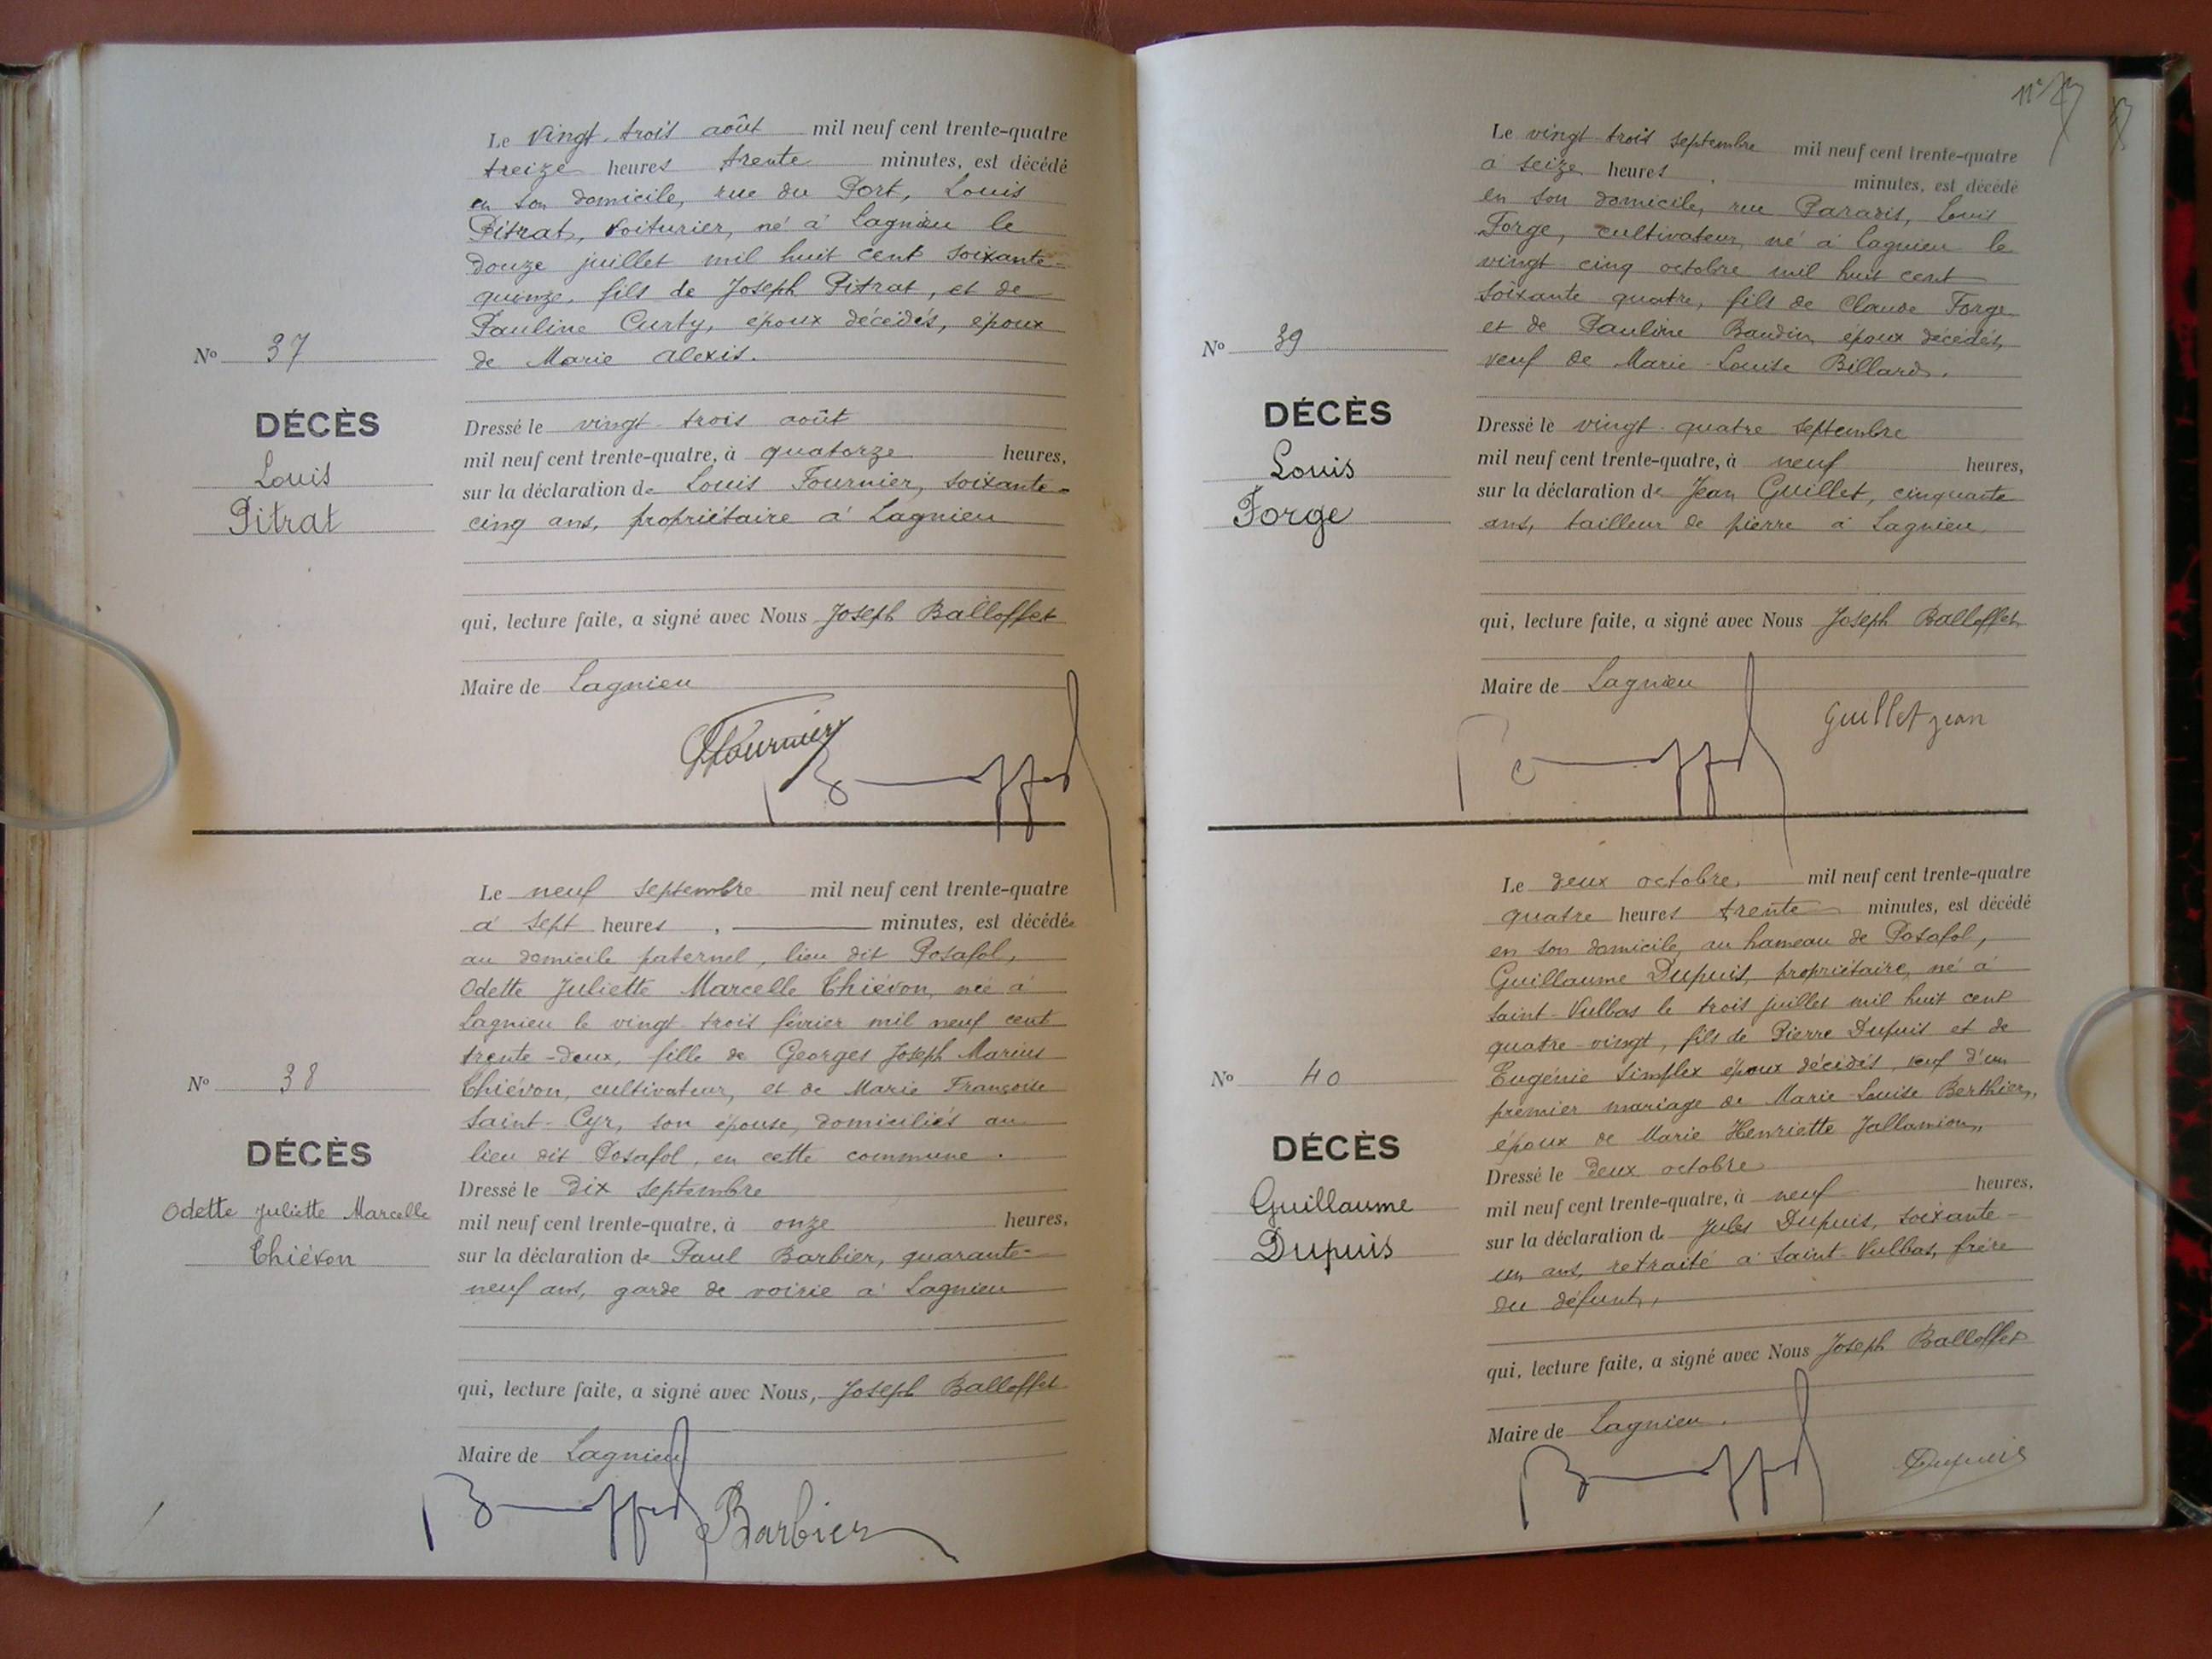 Le vingt-trois août mil neuf cent trente-quatre
treize heures trente minutes, est décédé
en son domicile, rue du Port, Louis
Pitrat, voiturier, né à Lagnieu le
douze juillet mil huit cent soixante-
quinze, fils de Joseph Pitrat, et de
Pauline Curty, époux décédés, époux
de Marie Alexis.
No 37
DÉCÈS
Louis
Pitrat
Dressé le vingt-trois août
mil neuf cent trente-quatre, à quatorze heures,
sur la déclaration de Louis Fournier, soixante-
cinq ans, propriétaire à Lagnieu
qui, lecture faite, a signé avec Nous Joseph Balloffet
Maire de Lagnieu
Fournier
Le neuf septembre mil neuf cent trente-quatre
à sept heures, minutes, est décédée
au domicile paternel, lieu dit Posafol,
Odette Juliette Marcelle Thiévon, née à
Lagnieu le vingt-trois février mil neuf cent
trente-deux, fille de Georges Joseph Marius
Thiévon, cultivateur, et de Marie Françoise
Saint-Cyr, son épouse, domiciliés au
lieu dit Posafol, en cette commune.
No 38
DÉCÈS
Odette Juliette Marcelle
Thiévon
Dressé le dix septembre
mil neuf cent trente-quatre, à onze heures,
sur la déclaration de Paul Barbier, quarante-
neuf ans, garde de voirie à Lagnieu
qui, lecture faite, a signé avec Nous, Joseph Balloffet
Maire de Lagnieu
Barbier
Le vingt-trois septembre mil neuf cent trente-quatre
à seize heures minutes, est décédé
en son domicile, rue Paradis, Louis
Forge, cultivateur, né à Lagnieu le
vingt cinq octobre mil huit cent
soixante quatre, fils de Claude Forge
et de Pauline Baudin, époux décédés,
veuf de Marie-Louise Billard.
No 39
DÉCÈS
Louis
Forge
Dressé le vingt-quatre septembre
mil neuf cent trente-quatre, à neuf heures,
sur la déclaration de Jean Guillet, cinquante
ans, tailleur de pierre à Lagnieu
qui, lecture faite, a signé avec Nous Joseph Balloffet
Maire de Lagnieu
Guillet jean
Le deux octobre, mil neuf cent trente-quatre
quatre heures trente minutes, est décédé
en son domicile, au hameau de Posafol,
Guillaume Dupuis, propriétaire, né à
Saint-Vulbas le trois juillet mil huit cent
quatre-vingt, fils de Pierre Dupuis et de
Eugénie Simplex époux décédés, veuf d'un
premier mariage de Marie-Louise Berthier,
époux de Marie Henriette Jallamion,
No 40
DÉCÈS
Guillaume
Dupuis
Dressé le deux octobre
mil neuf cent trente-quatre, à neuf heures,
sur la déclaration de Jules Dupuis, soixante-
un ans, retraité à Saint-Vulbas, frère
du défunt,
qui, lecture faite, a signé avec Nous Joseph Balloffet
Maire de Lagnieu.
Dupuis